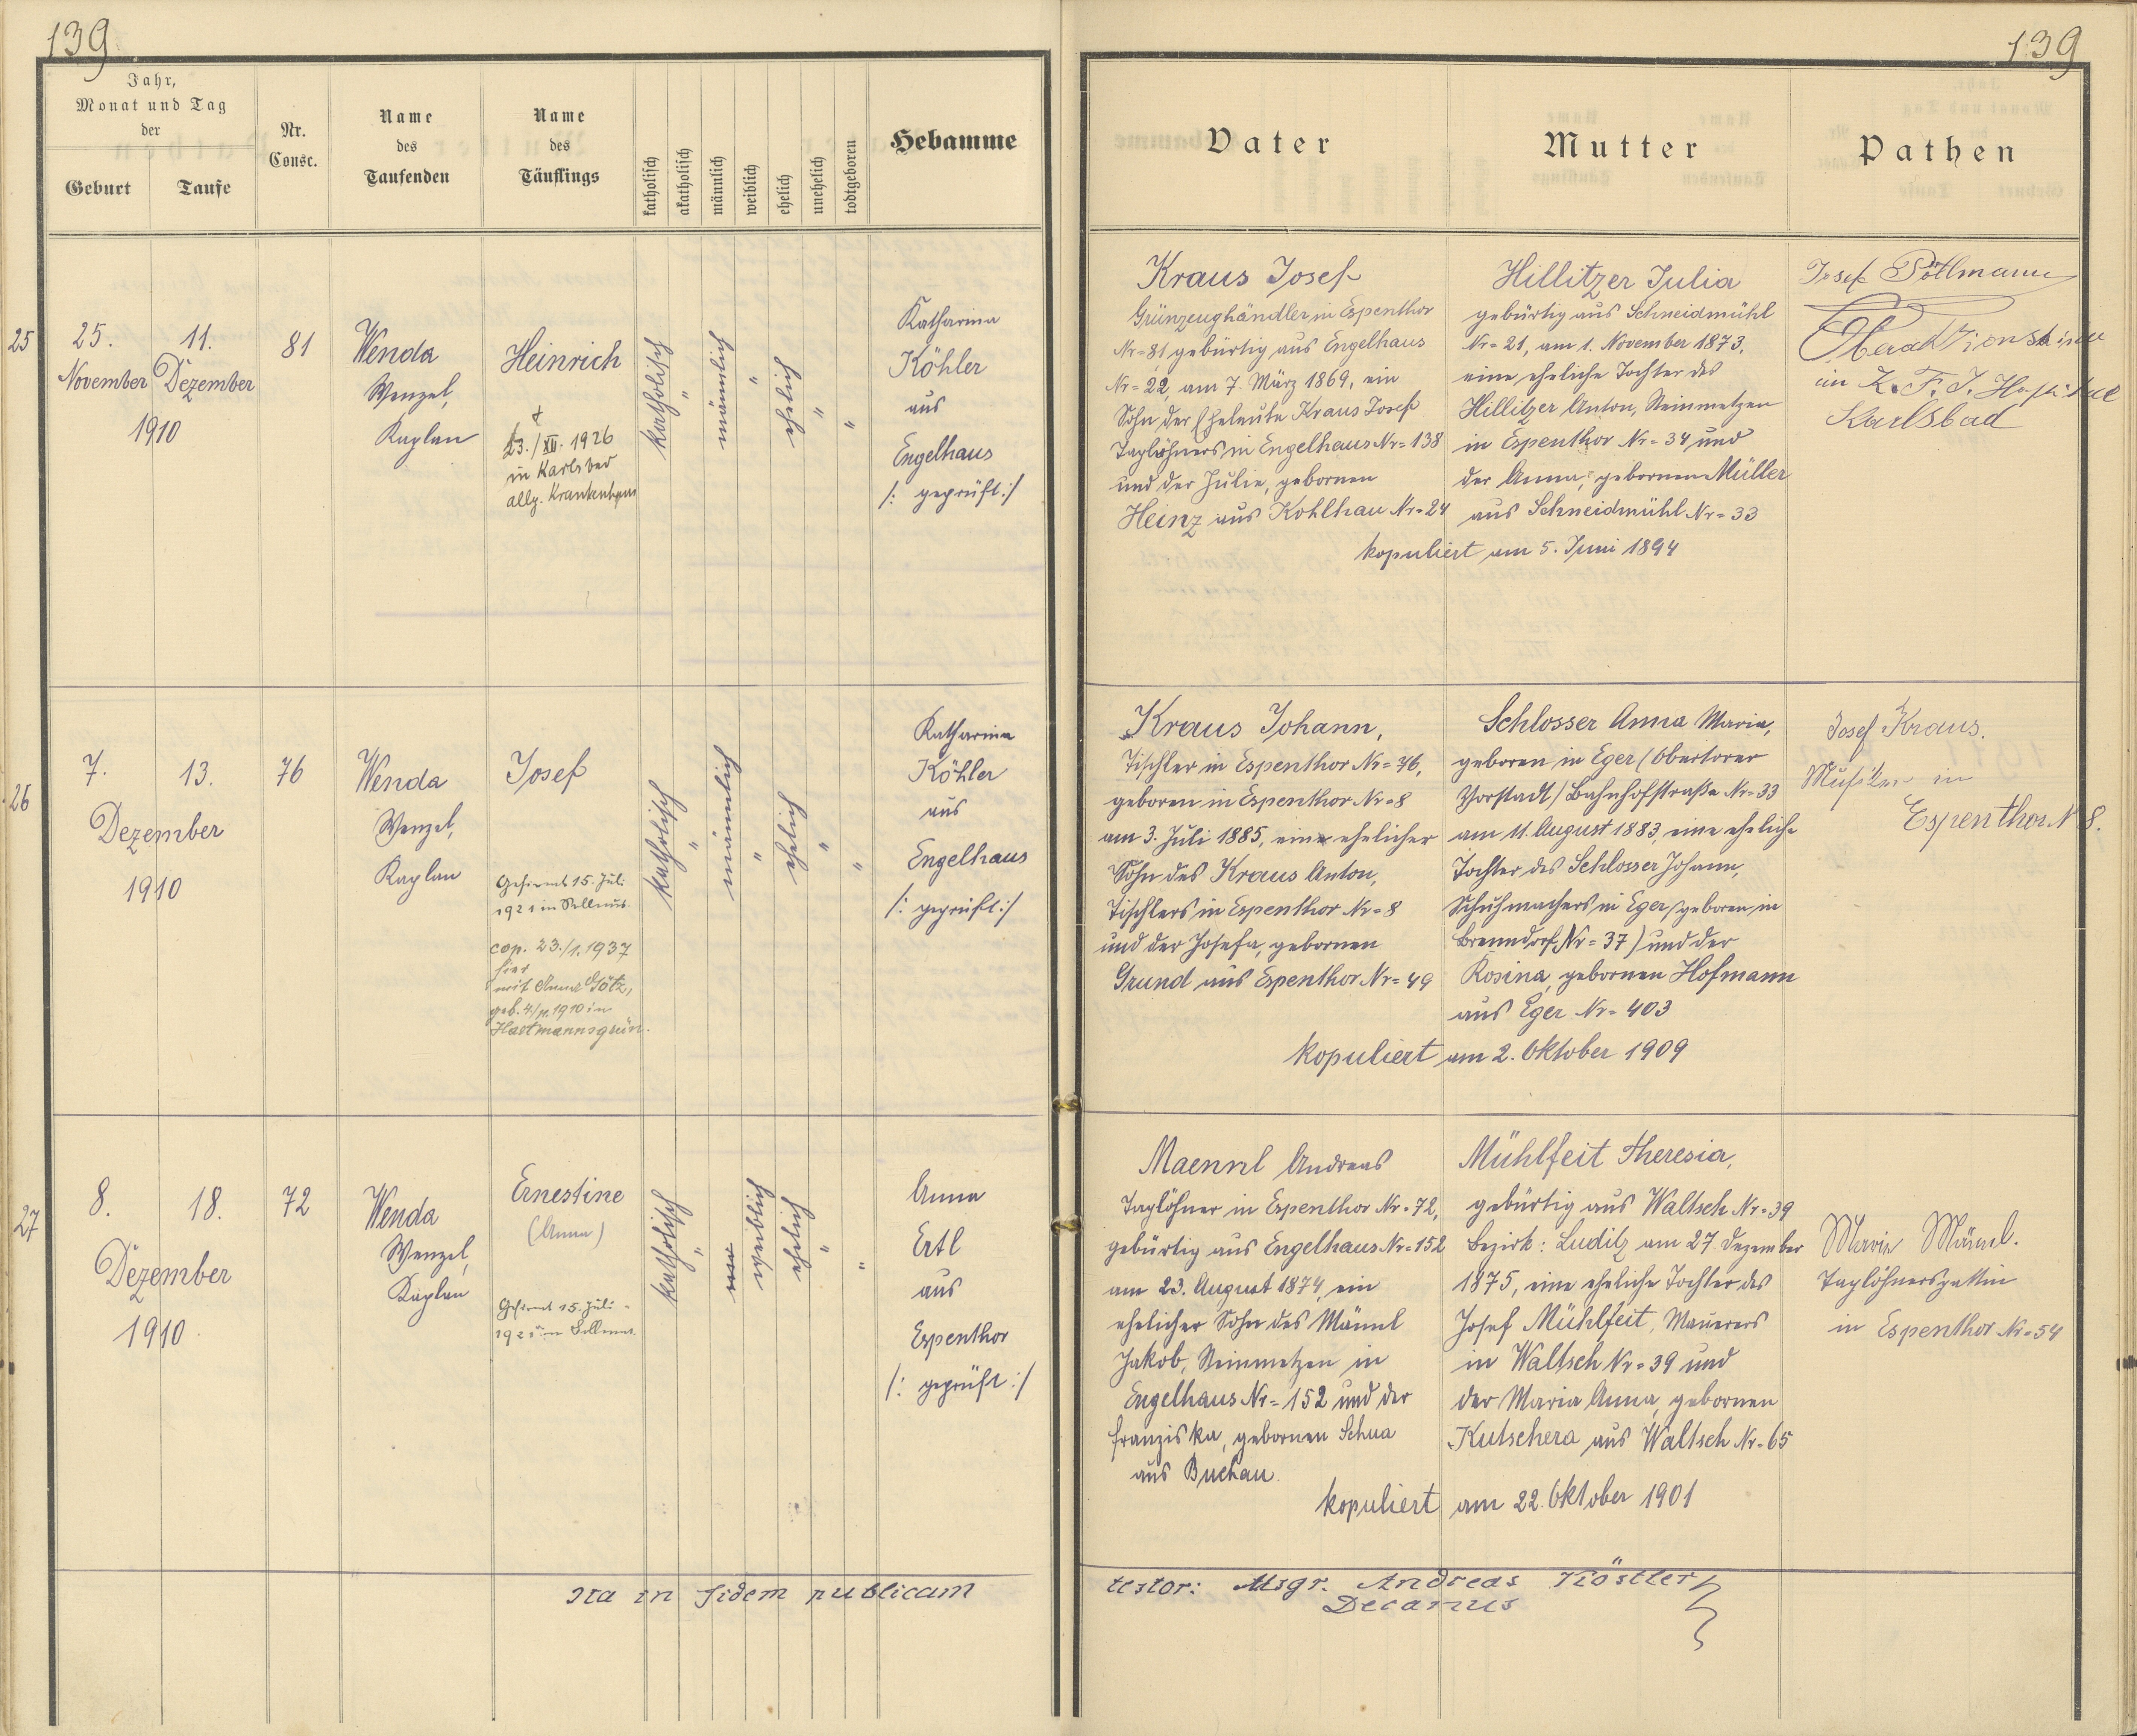 139
Jahr,
Monat und Tag
der
Geburt
Taufe
Nr.
Consc.
Name
des
Taufenden
Name
des
Täuflings
katholisch
akatholisch
männlich
weiblich
ehelich
unehelich
todtgeboren
Hebamme
25
25.
November
11.
Dezember
1910
81
Wenda
Wenzel,
Kaplan
Heinrich
†
23./XII. 1926
in Karlsbad
allg. Krankenhaus
katholisch
"
männlich
"
ehelich
"
"
Katharina
Köhler
aus
Engelhaus
/: geprüft :/
26
7.
13.
Dezember
1910
76
Wenda
Wenzel,
Kaplan
Josef
Gefirmt 15. Juli
1921 in
cop. 23./1. 1937
hier
mit Anna Götz,
geb. 4./11. 1910 in
Hartmannsgrün.
katholisch
"
männlich
"
ehelich
"
"
Katharina
Köhler
aus
Engelhaus
/: geprüft :/
27
8.
18.
Dezember
1910
72
Wenda
Wenzel,
Kaplan
Ernestine
(Anna)
Gefirmt 15. Juli
1921 in
katholisch
"
weiblich
ehelich
"
"
Anna
Ertl
aus
Espenthor
/: geprüft :/
Ita in fidem publicam
139
Vater
Mutter
Pathen
Kraus Josef
Grünzeughändler in Espenthor
Nr= 81 gebürtig aus Engelhaus
Nr= 22, am 7. März 1869, ein
Sohn der Eheleute Kraus Josef
Taglöhners in Engelhaus Nr= 138
und der Julie, gebornen
Heinz aus Kohlhau Nr= 24
Hillitzer Julia
gebürtig aus Schneidmühl
Nr= 21, am 1. November 1873,
eine eheliche Tochter des
Hillitzer Anton, Steinmetzen
in Espenthor Nr= 34 und
der Anna, gebornen Müller
aus Schneidmühl Nr= 33
kopuliert am 5. Juni 1894
Josef Pöttmann
im K. F. J. Hospital
Karlsbad
Kraus Johann,
Tischler in Espenthor Nr= 76,
geboren in Espenthor Nr= 8
am 3. Juli 1885, ein ehelicher
Sohn des Kraus Anton,
Tischlers in Espenthor Nr= 8
und der Josefa, gebornen
Grund aus Espenthor Nr= 49
Schlosser Anna Maria,
geboren in Eger (Obertorer
Vorstadt/Bahnhofstraße Nr= 33
am 11. August 1883, eine eheliche
Tochter des Schlosser Johann,
Schuhmachers in Eger (geboren in
Brenndorf Nr= 37) und der
Rosina, gebornen Hofmann
aus Eger Nr= 403
kopuliert am 2. Oktober 1909
Josef Kraus.
Musiker in
Espenthor N 8.
Maennl Andreas
Taglöhner in Espenthor Nr= 72,
gebürtig aus Engelhaus Nr= 152
am 23. August 1874, ein
ehelicher Sohn des Männl
Jakob, Steinmetzen in
Engelhaus Nr= 152 und der
Franziska, gebornen Schua
aus Buchau.
Mühlfeit Theresia,
gebürtig aus Waltsch Nr= 39
Bezirk: Luditz am 27. Dezember
1875, eine eheliche Tochter des
Josef Mühlfeit, Maurers
in Waltsch Nr= 39 und
der Maria Anna, gebornen
Kutschera aus Waltsch Nr= 65
kopuliert am 22. Oktober 1901
Maria Männl.
Taglöhnersgattin
in Espenthor Nr= 54
testor: Msgr. Andreas Köstler
Decanus